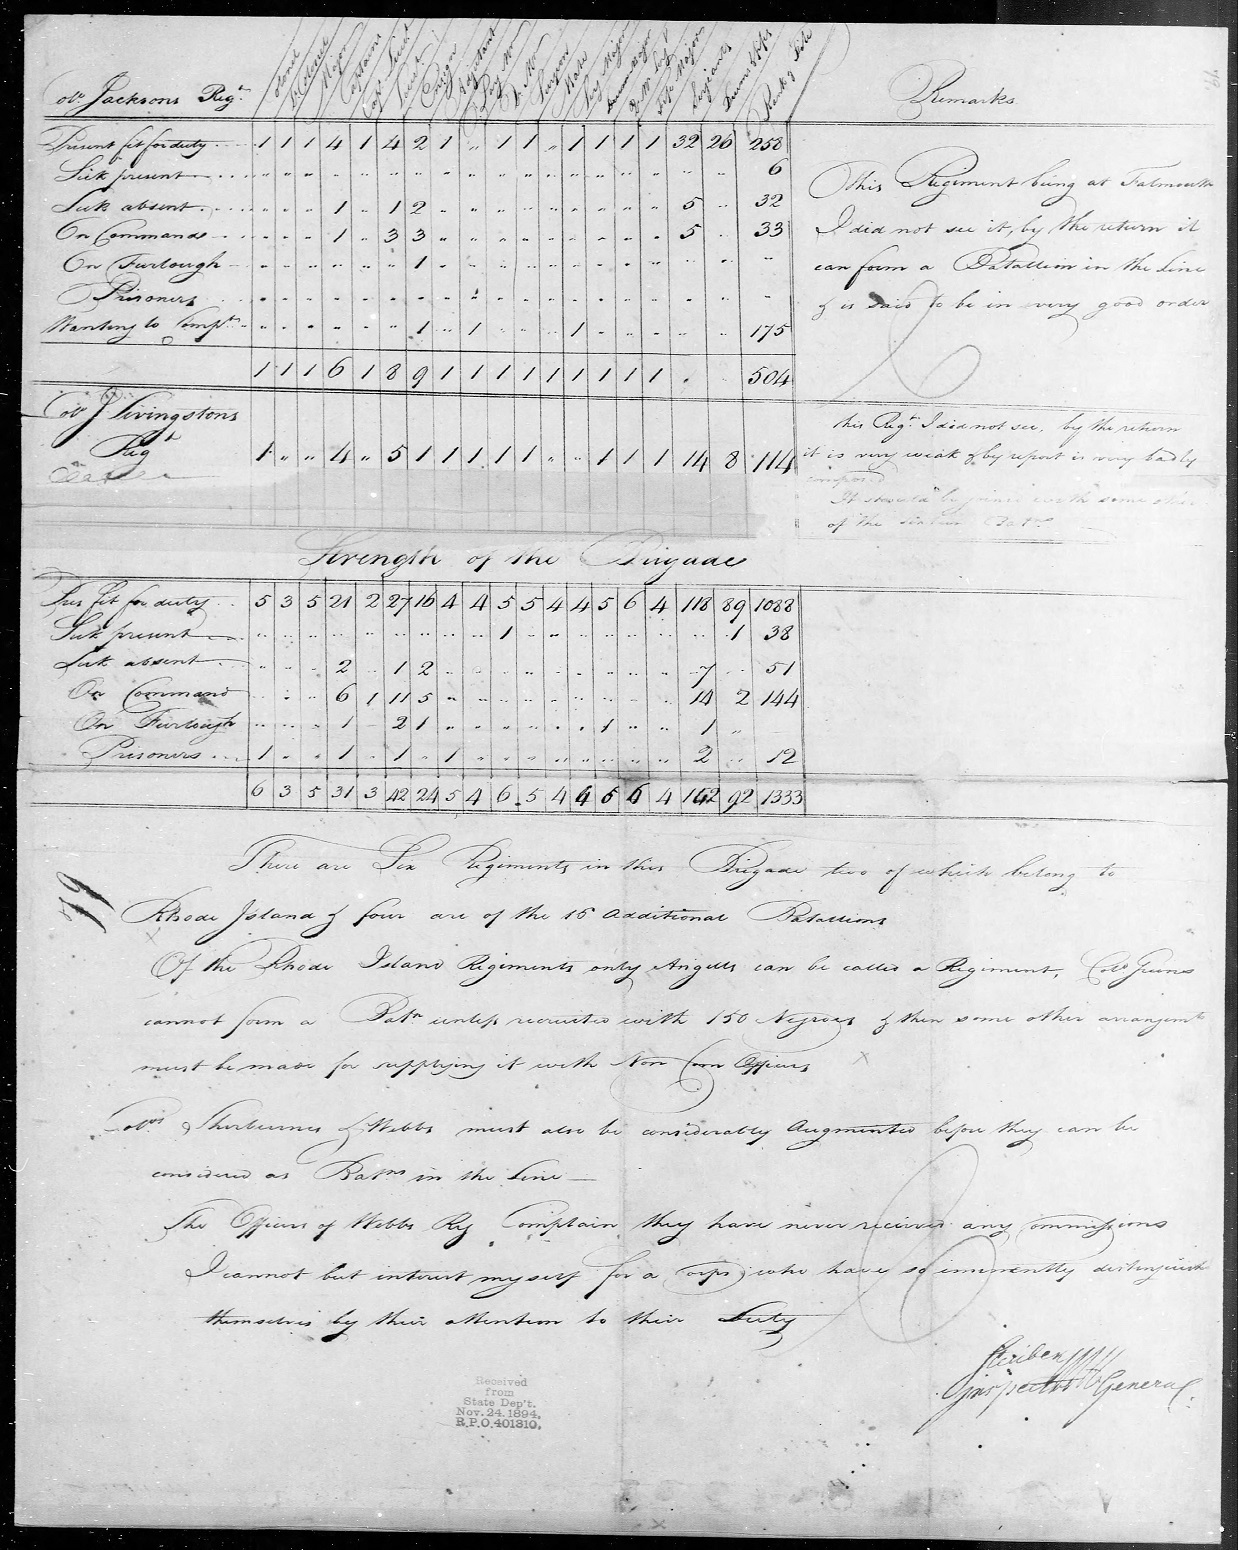 Colo. Jacksons Regt. Colonel Lt Colonel Major Captains Capt Lieut Lieut. Ensign Adjutant Pay Mr Qr. Mr Surgeon Mate Serj Major Drum Major Qr Mr Serjt Fife Major Serjeants Drums & Fifes Rank & File Remarks.
Present fit for duty 1 1 1 4 1 4 2 1 " 1 1 " 1 1 1 1 32 26 258
Sick present 6
Sick absent 1 1 2 5 32
On Command 1 3 3 5 33
On Furlough 1
Prisoners
Wanting to Compt. 1 1 1 175
1 1 1 6 1 8 9 1 1 1 1 1 1 1 1 1 504
This Regiment being at Falmouth
I did not see it, by the return it
can form a Batallion in the Line
& is said to be in very good order
Colo J Livingstons
Regt 1 " " 4 " 5 1 1 1 1 1 " " 1 1 1 14 8 114
this Regt. I did not see, by the return
it is very weak & by report is very badly
composed
It should be joined with some other
of the Batns
Strength of the Brigade
Pres fit for duty 5 3 5 21 2 27 16 4 4 5 5 4 4 5 6 4 118 89 1088
Sick present 1 1 38
Sick absent 2 1 2 7 51
On Command 6 1 11 5 14 2 144
On Furlough 1 2 1 1 1
Prisoners 1 1 1 1 2 12
6 3 5 31 3 42 24 5 4 6 5 4 4 6 6 4 142 92 1333
There are Six Regiments in this Brigade two of which belong to
Rhode Island & four are of the 16 Additional Batallions
Of the Rhode Island Regiments only Angells can be called a Regiment, Colo Greens
cannot form a Batn unless recruited with 150 Negroes & then some other arrangemts
must be made for supplying it with Non Com Officers
Colos Sherburnes & Webbs must also be considerably Augmented before they can be
considered as Batns in the Line —
The Officers of Webbs Reg Complain they have never received any Commissions
I cannot but interest myself for a Corps who have so eminently distinguish
themselves by their attention to their Duty
Steuben
Inspector General
Received
from
State Dep't.
Nov. 24. 1894.
R.P.O. 401310.